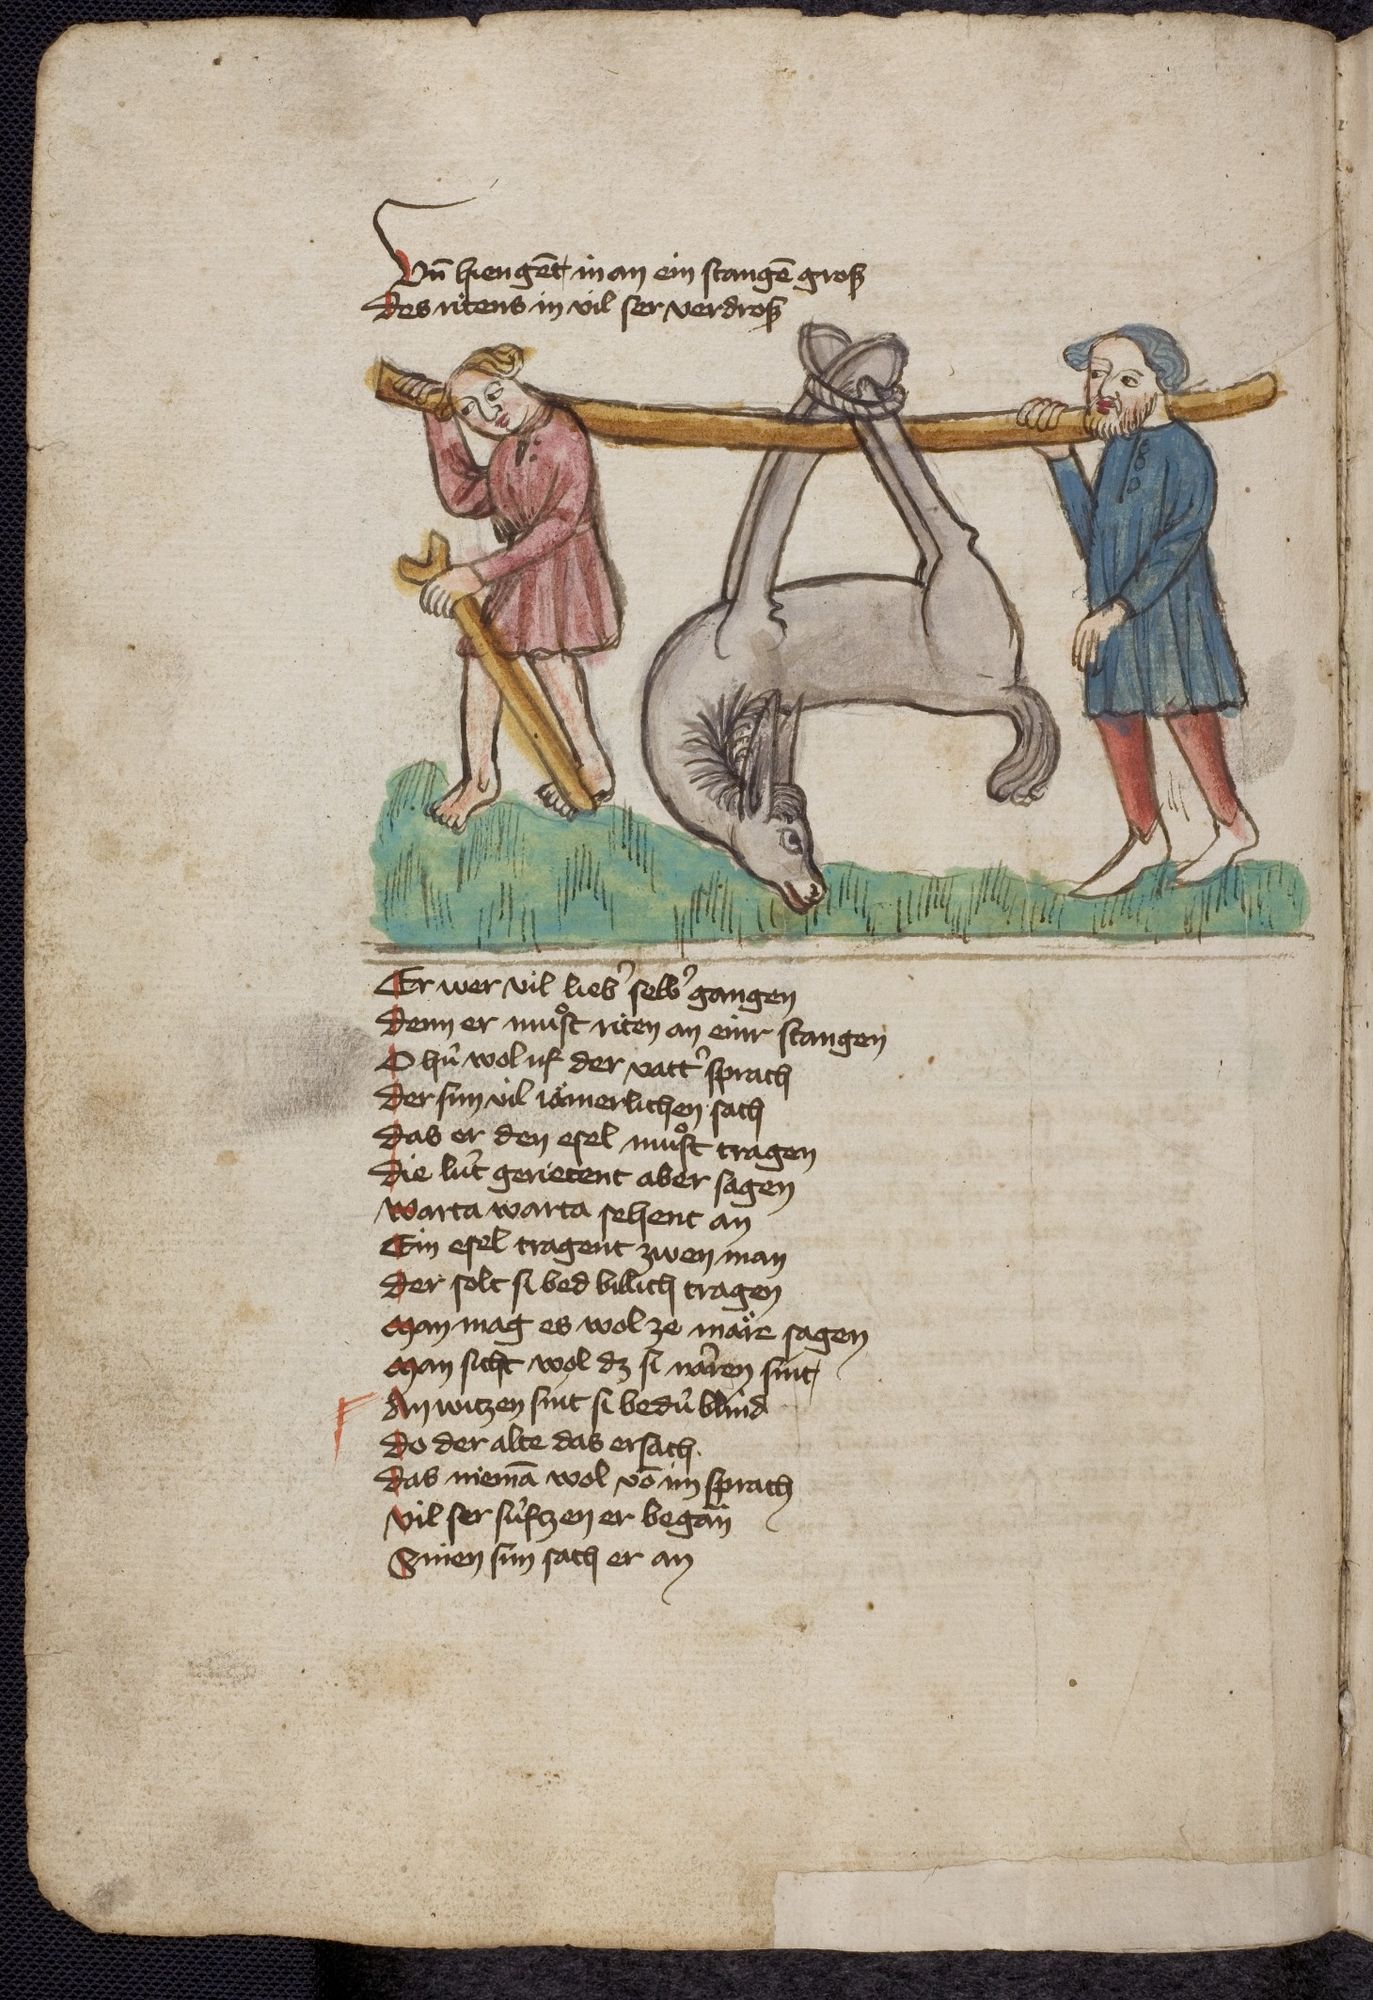 Vn̄ hiengēt in an ein stangē groß
Des ritens in vil ser verdroß
Er wer vil lieb᾽ selb᾽ gangen
Denn er muͦst riten an einr stangen
O hu᷑ wol uf der vatt᾽ sprach
Der sun vil iämerlichen sach
Das er den esel muͦst tragen
Die lu᷑t gerietent aber sagen
Warta warta sehent an
Ein esel tragent zwen man
Der solt si bed billich tragen
Man mag es wol ze märe sagen
Man sicht wol dz si narren sint
An witzen sint si bedu᷑ blind
Do der alte das ersach.
Das niemā wol vō im sprach
Vil ser su᷑fzen er began
Sinen sun sach er an